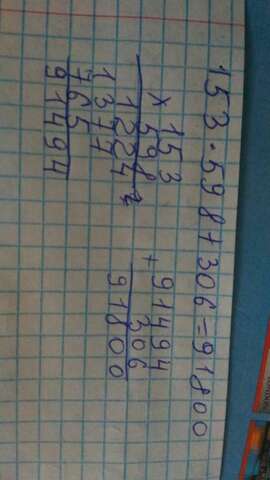 153·598+306=91800
153
×
598
1224
1377
765
91494
91494
+
306
91800